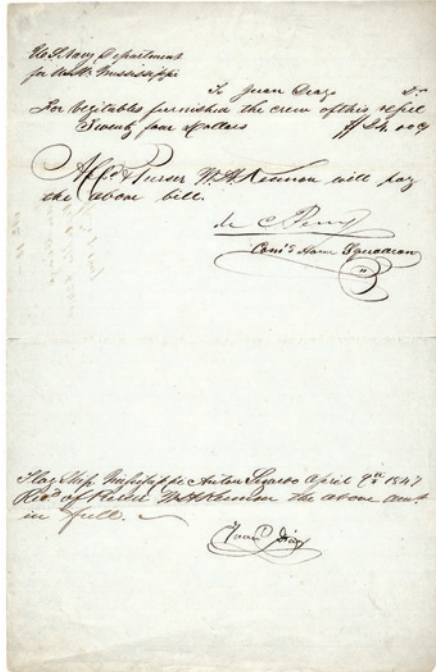 U. S. Navy Department
for U.S.S. Mississippi
To Juan Diago Dr
For Vegitables furnished the crew of this vessel
Twenty four Dollars $24.00
Appd Purser W. A. Kennon will pay
the above bill.
M C Perry
Comg Home Squadron
Flag Ship Mississippi Anton Lizardo April 9th 1847
Recd of Purser W A Kennon the above amt.
in full.
Juan Diago